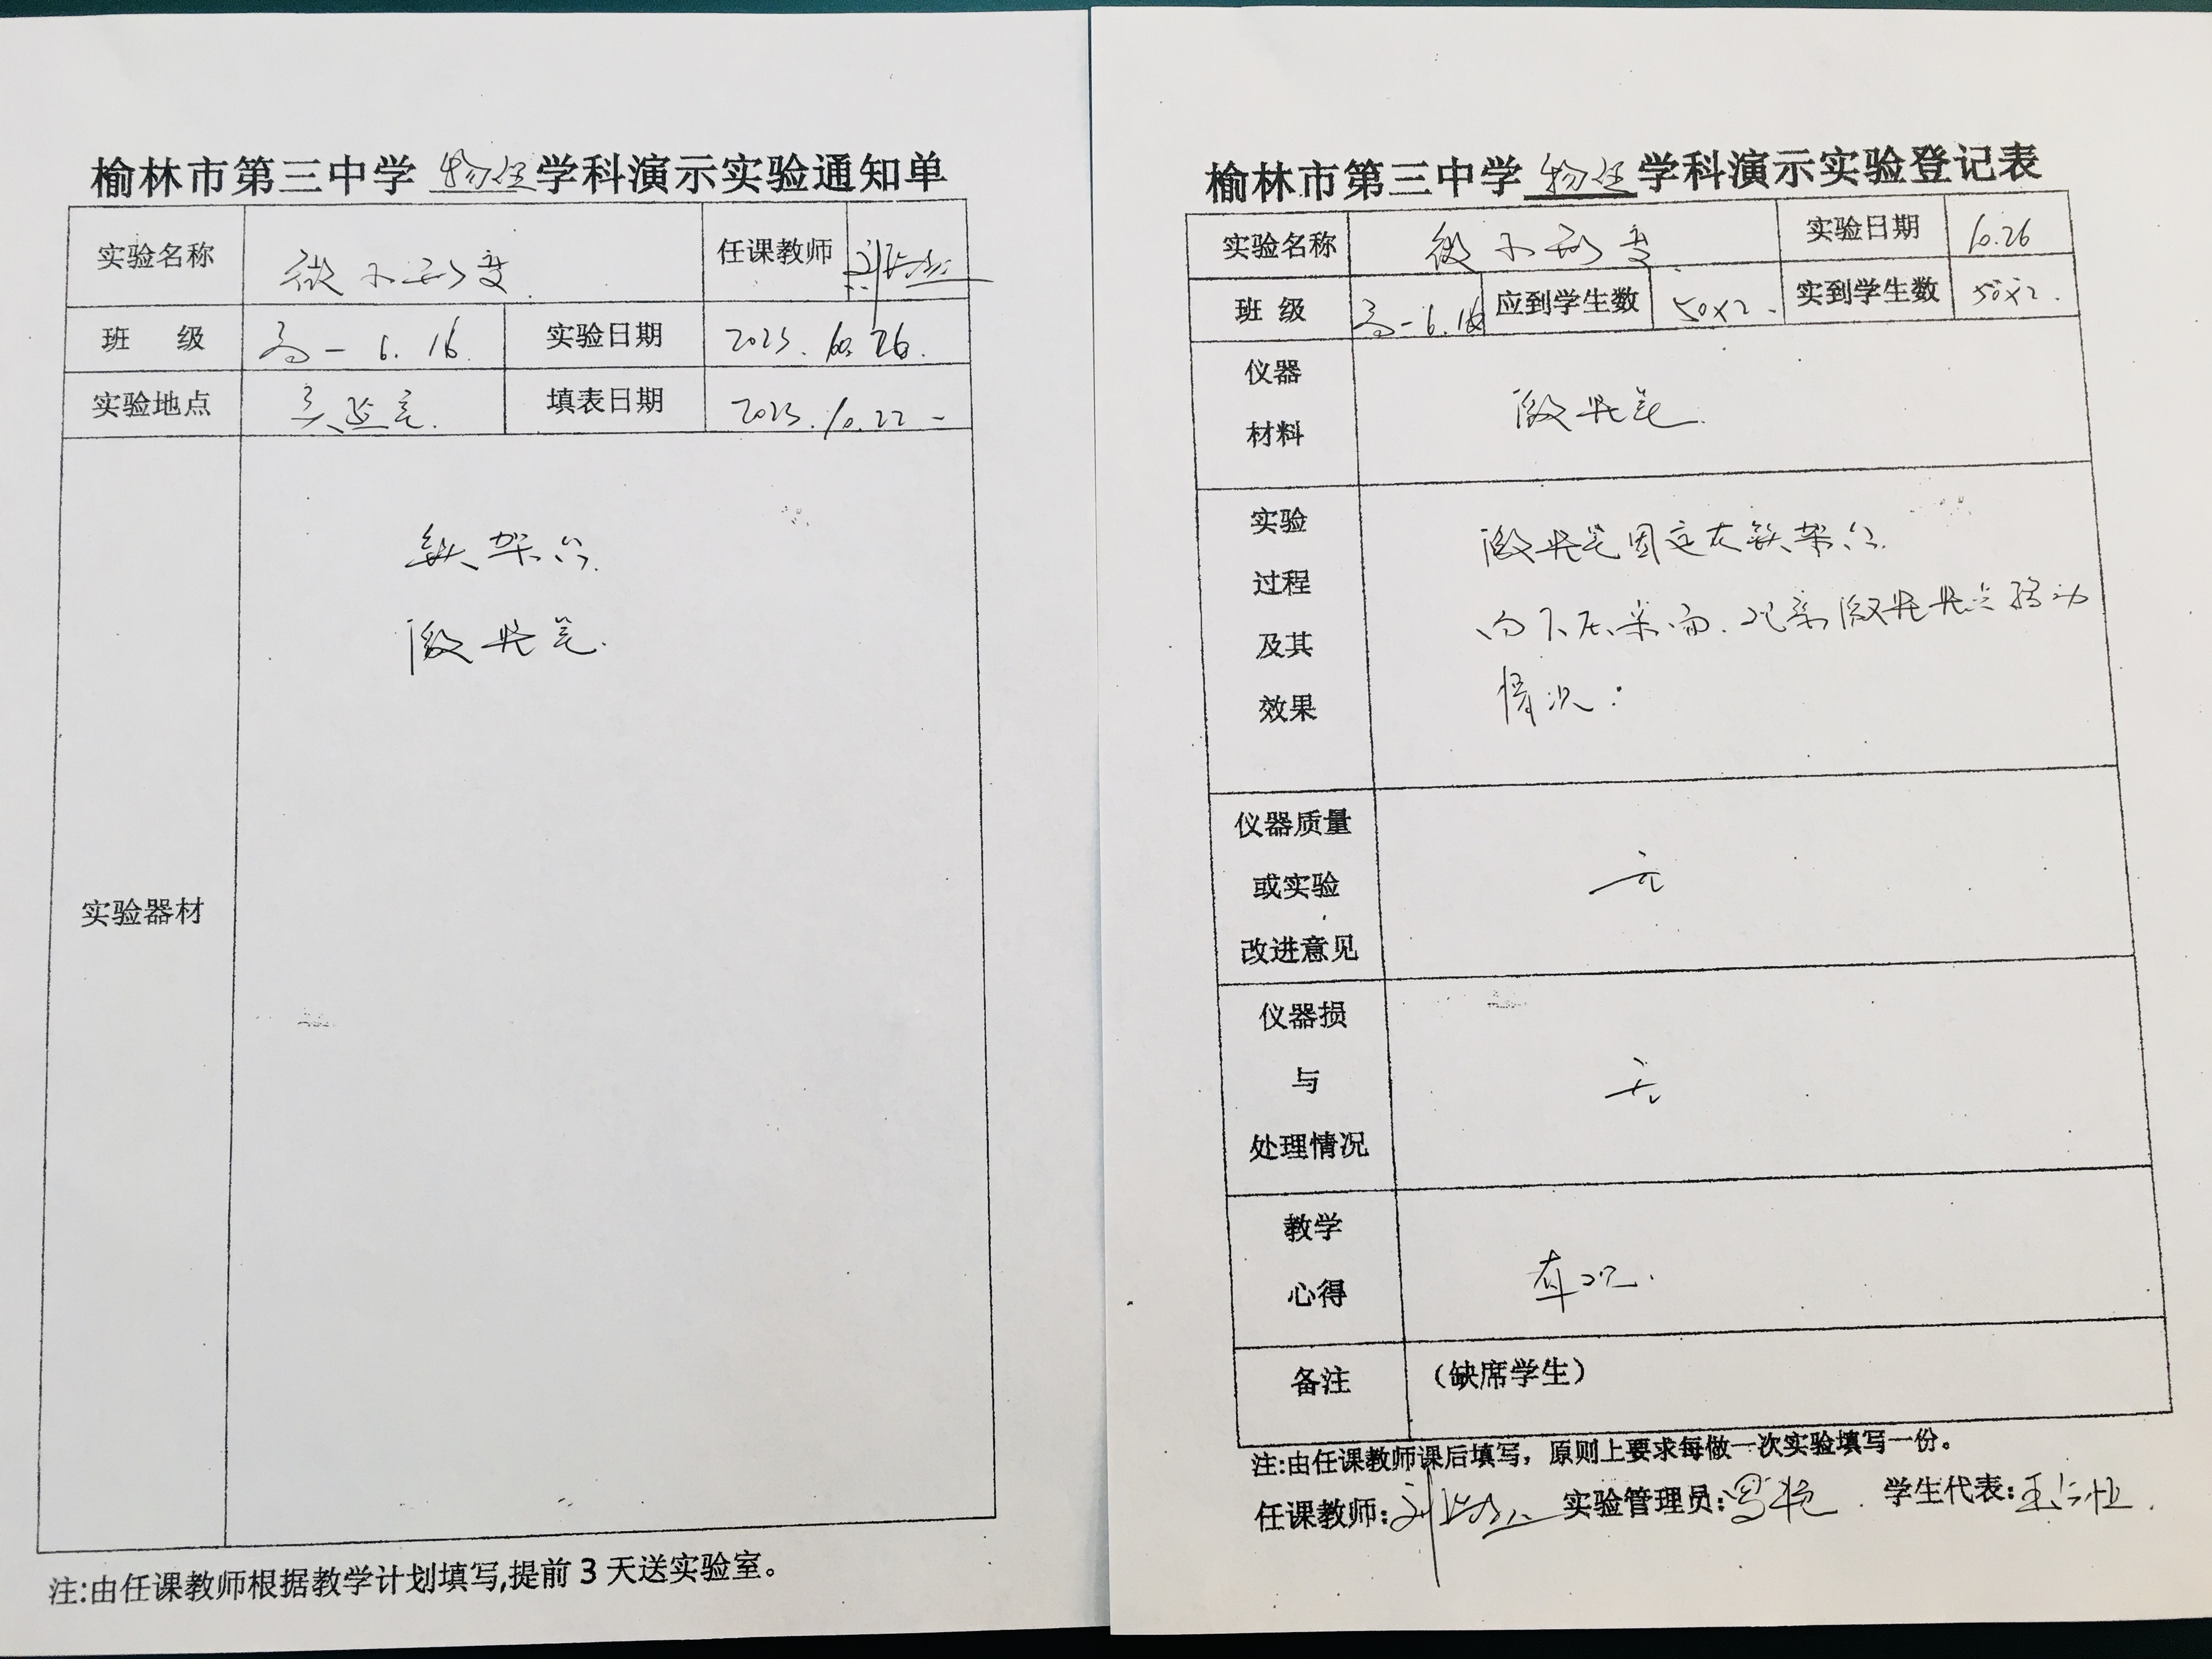 榆林市第三中学 物理 学科演示实验通知单
实验名称 微小形变 任课教师
班 级 高一 6. 16. 实验日期 2023. 10. 26.
实验地点 实验室. 填表日期 2023. 10. 22
实验器材
铁架台.
激光笔.
注:由任课教师根据教学计划填写,提前 3 天送实验室。
榆林市第三中学 物理 学科演示实验登记表
实验名称 微小形变 实验日期 10.26
班 级 高一 6. 16 应到学生数 50×2. 实到学生数 50×2.
仪器
材料
激光笔.
实验
过程
及其
效果
激光笔固定在铁架台.
向下压桌面. 观察激光光点移动
情况:
仪器质量
或实验
改进意见
无
仪器损
与
处理情况
无
教学
心得
直观.
备注 (缺席学生)
注:由任课教师课后填写，原则上要求每做一次实验填写一份。
任课教师: 实验管理员: 学生代表: